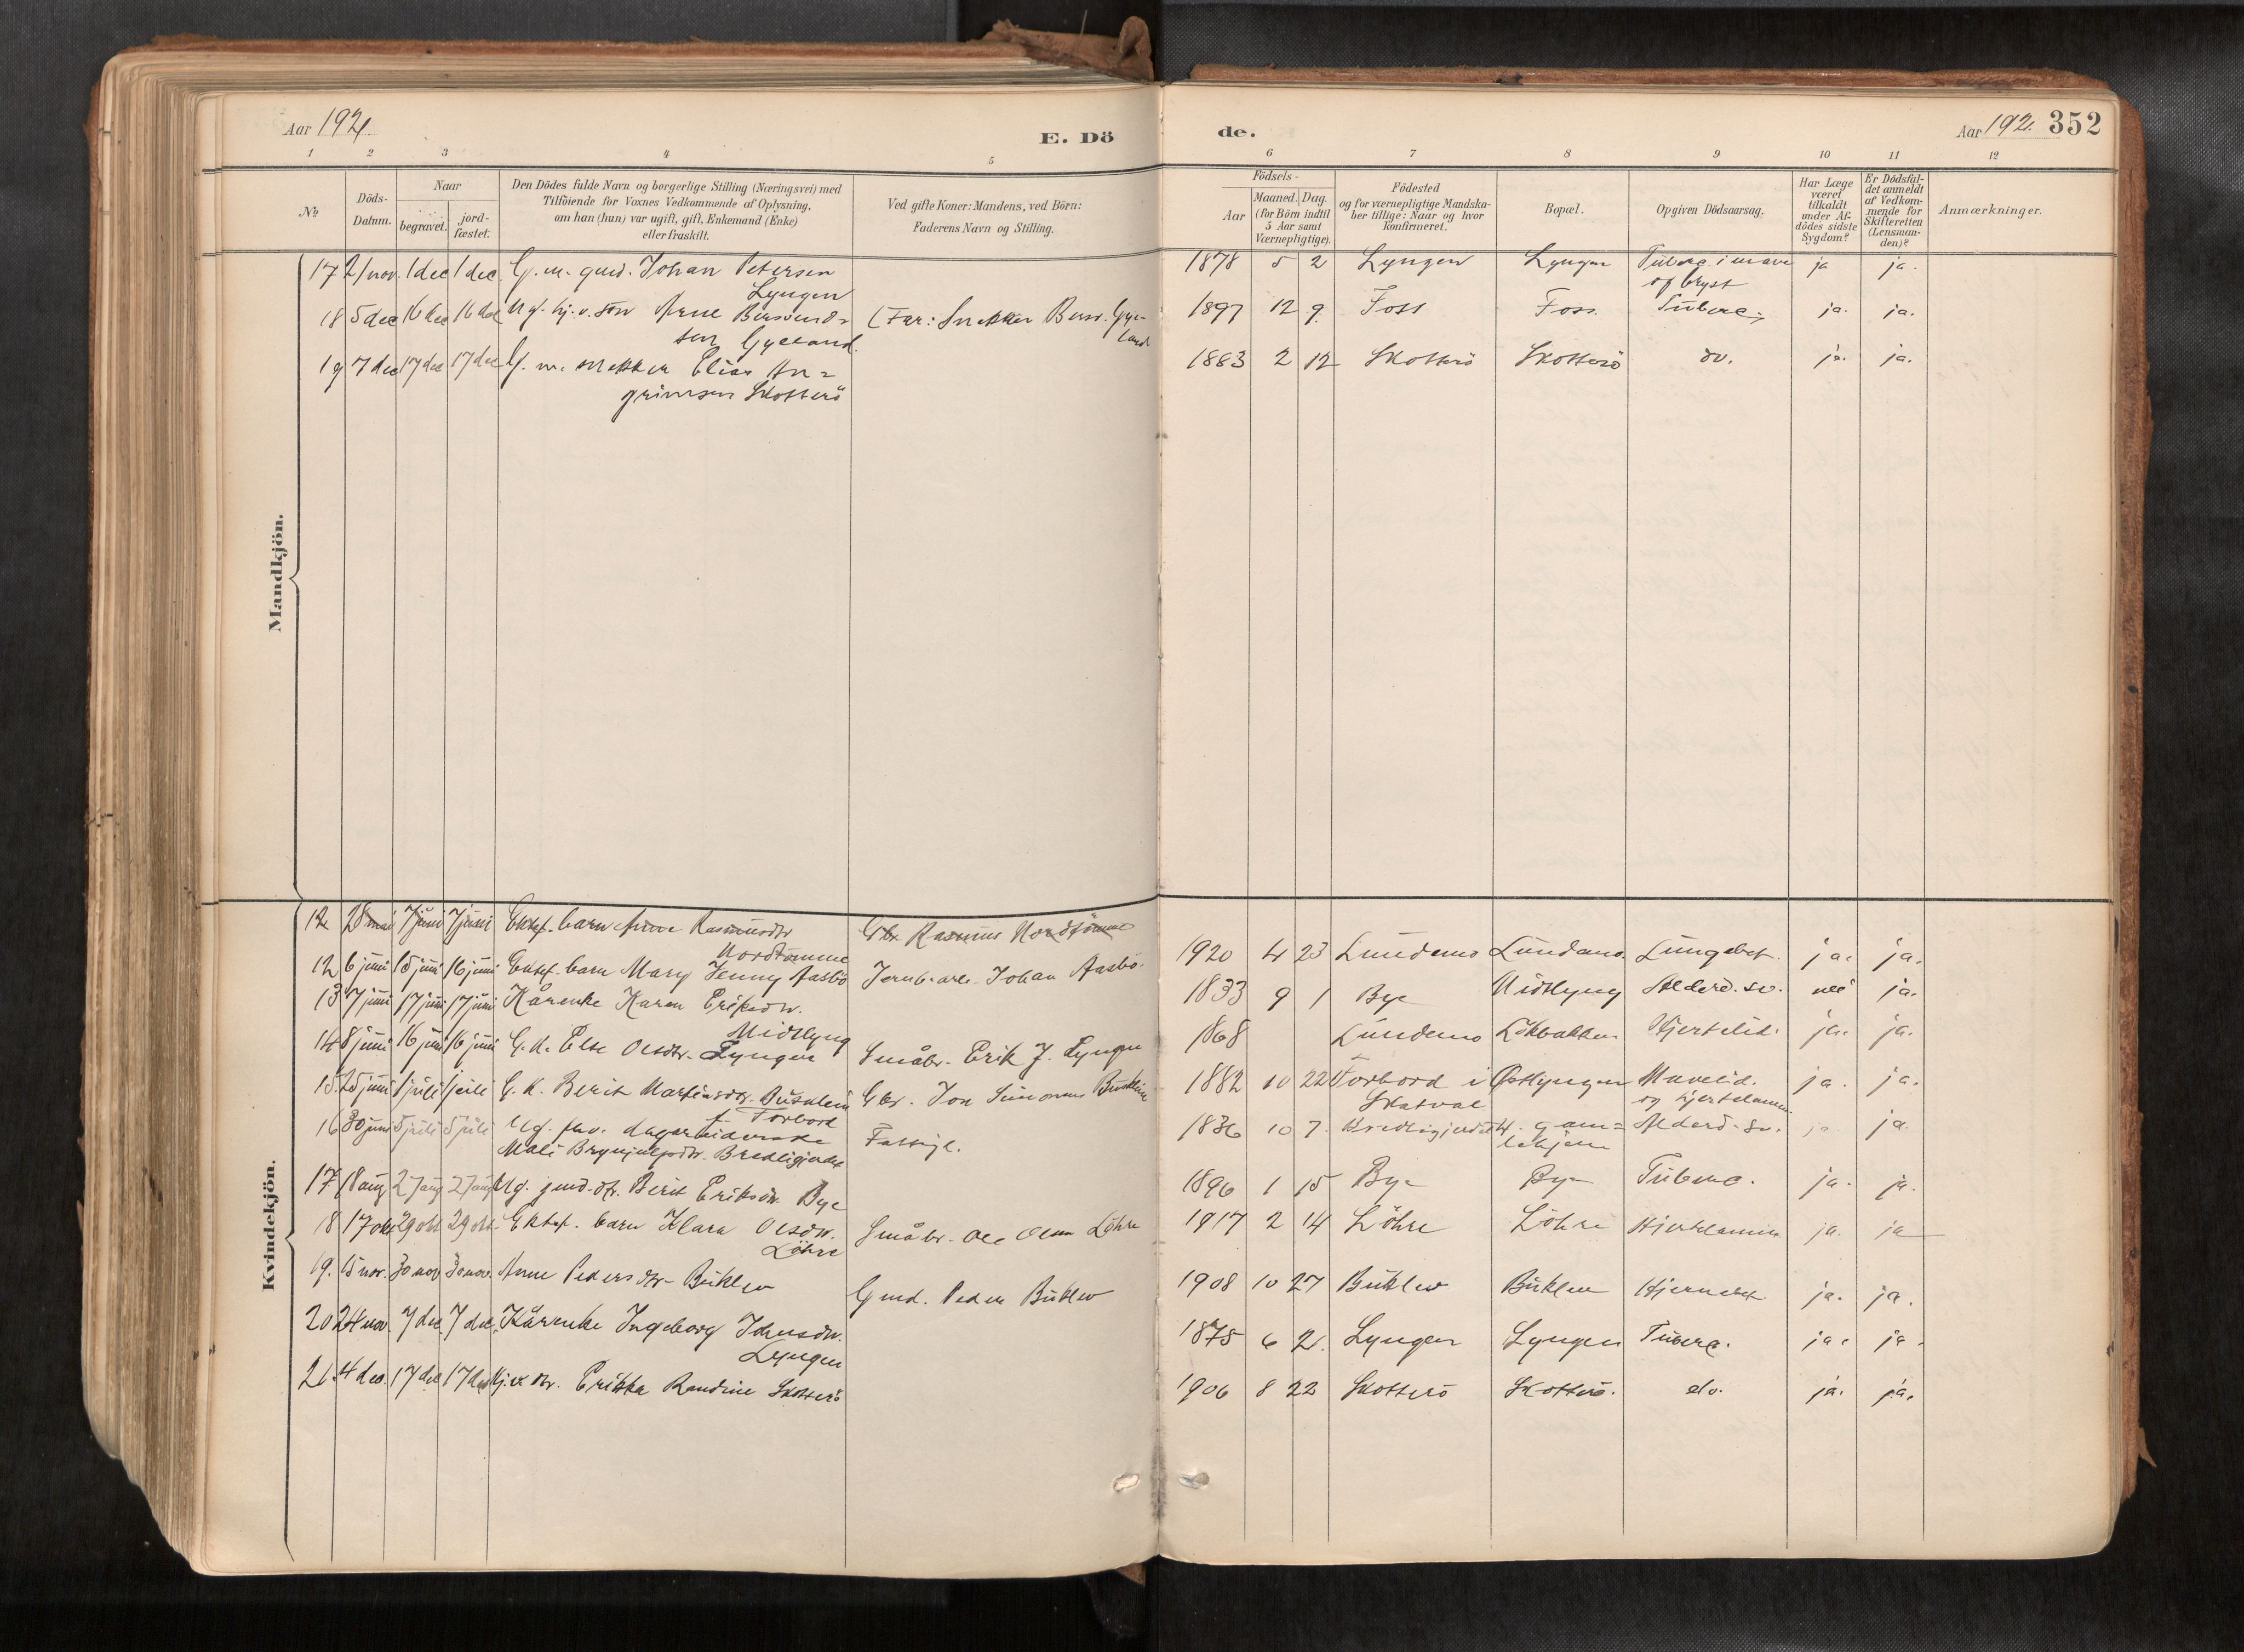 Aar 1921.
E. Dö
de.
Aar 192
352
1 2 3 4 5 6 7 8 9 10 11 12
№
Döds-
Datum.
Naar
begravet.
jord-
fæstet.
Den Dödes fulde Navn og borgerlige Stilling (Næringsvei) med
Tilföiende for Voxnes Vedkommende af Oplysning,
om han (hun) var ugift, gift, Enkemand (Enke)
eller fraskilt.
Ved gifte Koner: Mandens, ved Börn:
Faderens Navn og Stilling.
Födsels-
Aar
Maaned. Dag.
(for Börn indtil
5 Aar samt
Værnepligtige).
Födested
og for værnepligtige Mandska-
ber tillige: Naar og hvor
konfirmeret.
Bopæl.
Opgiven Dödsaarsag.
Har Læge
været
tilkaldt
under Af-
dödes sidste
Sygdom?
Er Dödsfal-
det anmeldt
af Vedkom-
mende for
Skifteretten
(Lensman-
den)?
Anmærkninger.
Mandkjön.
17 21 nov. 1 dec 1 dec G. m. gmd. Johan Petersen 1878 5 2 Lyngen Lyngen Tuberc. i mave ja ja.
Lyngen og bryst
18 5 dec 16 dec 16 dec Ug. hj. v. sön Arne (Far: Snekker 1897 12 9. Foss Foss. Tuberc. ja. ja.
19 7 dec 17 dec 17 dec G. m. snekker Elias 1883 2 12 Skotterö Skotterö do. ja. ja.
grimsen Skotterö
Kvindekjön.
12 28 mai 7 juni 7 juni Ektef. barn Anne Rasmusdtr Gbr. Rasmus Nordtömme
Nordtömme
12 6 juni 15 juni 16 juni Ektef. barn Mary Jenny Aasbö Jernb. arb. Johan Aasbö. 1920 4 23 Lundemo Lundamo. Lungebet. ja. ja.
13 7 juni 17 juni 17 juni Kårenke Karen Eriksdtr. 1833 9 1 Bye Midtlyng Alderd. sv. nei ja.
Midtlyng
14 8 juni 16 juni 16 juni G. k. Else Olsdtr. Lyngen Småbr. Erik J. Lyngen 1868 Lundemo Hjertelid. ja. ja.
15 25 juni 1 juli 1 juli G. K. Berit Martinsdtr. Gbr. Jon 1882 10 22 Forbord i Østlyngen Mavelid. ja. ja.
f. Forbord Skatval og hjertelamm.
16 30 juni 5 juli 5 juli Ug. fhv. dagarbeiderske Fattigl. 1836 10 7. gam= Alderd. sv. ja ja.
Mali lehjem
17 18 aug 27 aug 27 aug Ug. gmd. dtr. Berit Eriksdtr. Bye 1896 1 15 Bye Bye Tuberc. ja. ja.
18 17 okt 29 okt 29 okt. Ektef. barn Klara Olsdtr. Småbr. Ole Olsen Löhre 1917 2 14 Löhre Löhre Hjertelamm. ja. ja
Löhre
19. 15 nov. 30 nov 30 nov. Anne Pedersdtr. Buklev Gmd. Peder Buklev 1908 10 27 Buklev Buklev Hjernebet. ja. ja.
20 24 nov. 7 dec. 7 dec. Kårenke Ingeborg Johnsdtr. 1875 6 2. Lyngen Lyngen Tuberc. ja. ja.
Lyngen
21. 4 dec. 17 dec 17 dec Hj. v. dtr. Erikka Randine Skotterö 1906 8 22 Skotterö Skotterö. do. ja. ja.